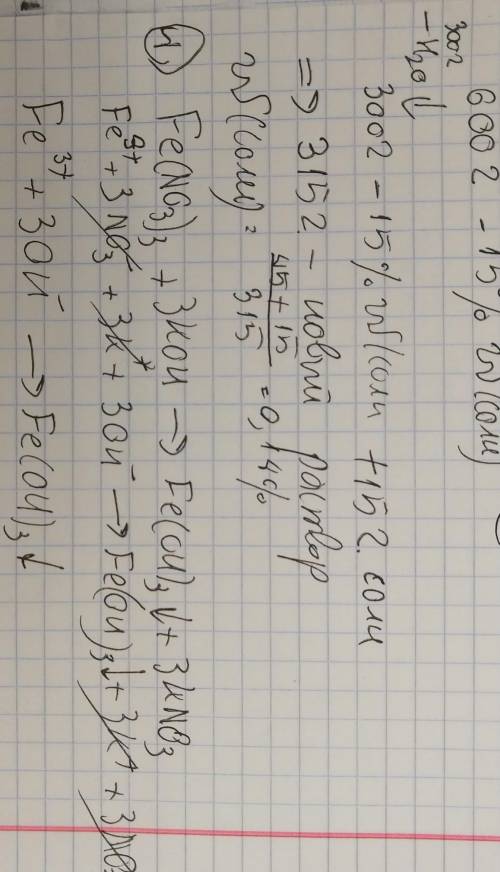 600г - 15% W(соли)
300г
-H₂O↓
300г - 15% W(соли + 15г. соли
=> 315г. - новый раствор
W(соли) = 45 + 15 / 315 = 0,14%
4) Fe(NO₃)₃ + 3KOH → Fe(OH)₃↓ + 3KNO₃
Fe³⁺ + 3NO₃⁻ + 3K⁺ + 3OH⁻ → Fe(OH)₃↓ + 3K⁺ + 3NO₃
Fe³⁺ + 3OH⁻ → Fe(OH)₃↓